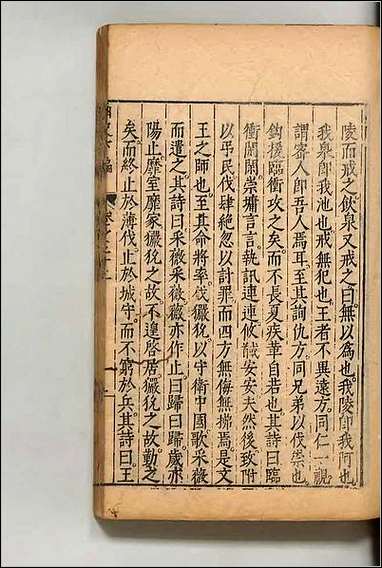 陵而戒之飲泉又戒之曰無以為也我陵即我阿也
我泉即我池也戒無犯也王者不異遠方同仁一視
謂密人即吾人焉耳至其詢仇方同兄弟以伐崇也
鉤援臨衝攻之矣而不長夏疾革自若也其詩曰臨
衝閑閑崇墉言言執訊連連攸馘安安夫然後致附
以平民伐肆絶忽以討罪而四方無侮無拂焉是文
王之師也至其命將率伐玁狁以守衛中國歌采薇
而遣之其詩曰采薇采薇薇亦作止曰歸曰歸歲亦
陽止靡室靡家玁狁之故不遑啓居玁狁之故勤之
矣而終止於薄伐止於城守而不窮於兵其詩曰王